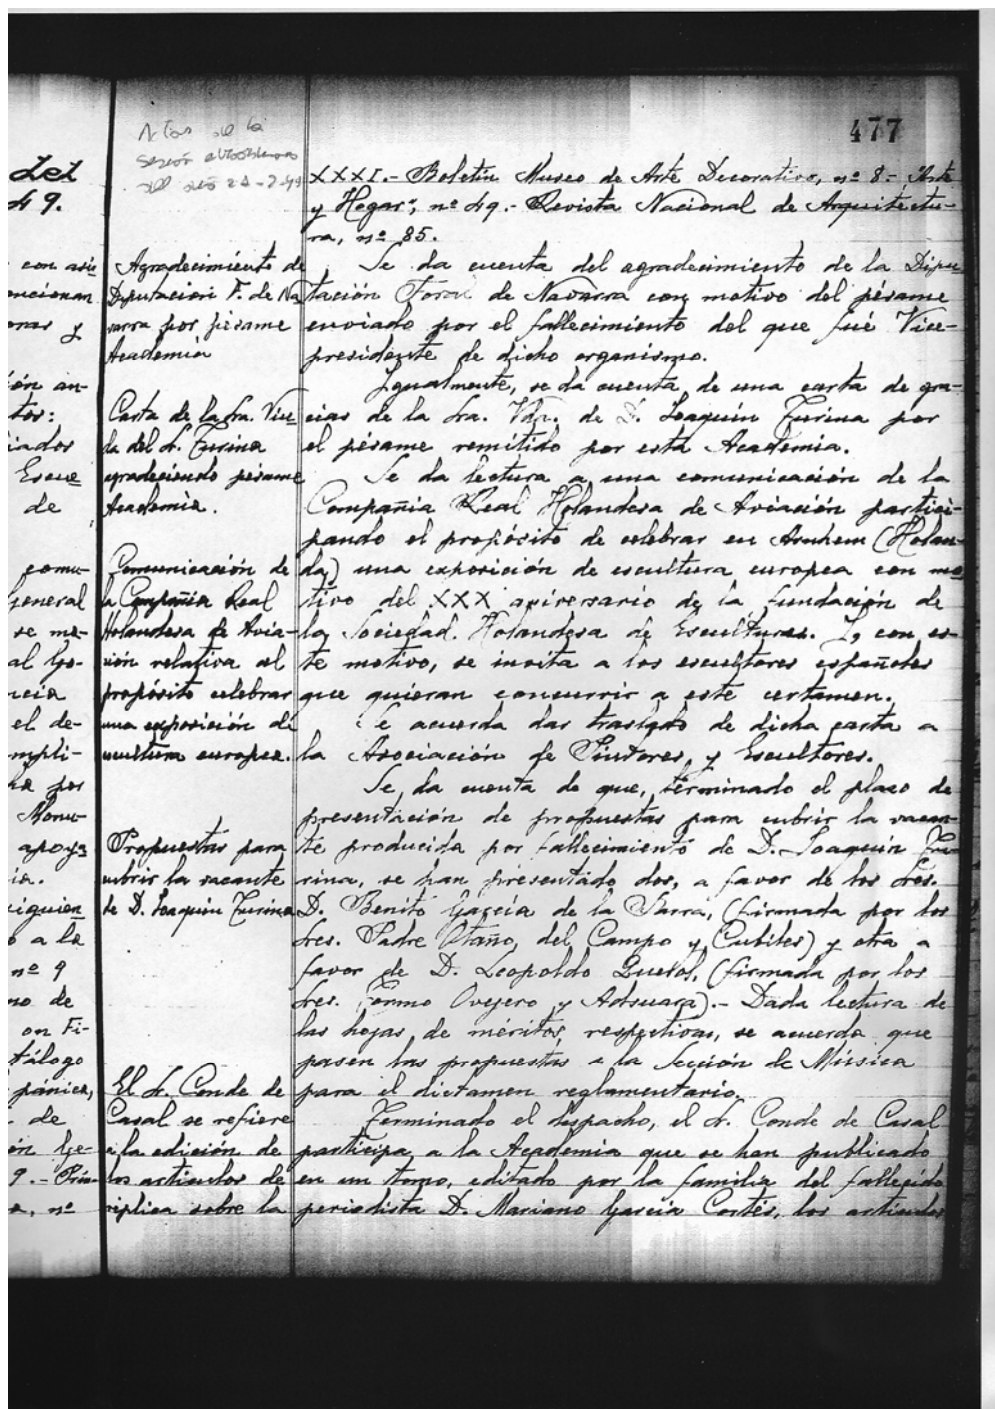 477
Actas de la
sesión
del día 2 -49
Let
49.
con asis
encionan
onar y
ión an-
tos:
iador
Escue
de
comu-
general
se me-
al Go-
ncia
el de-
mpli-
ha por
Monu-
apoya
ia.
siguien
o a la
nº 9
no de
on Fi-
tálogo
pánica,
de
ón Ge-
9.- Prin-
a, nº
Agradecimiento de
Diputación F. de Na
varra por pésame
Academia
Carta de la Sra. Viu-
da del Sr. Turina
agradeciendo pésame
Academia.
Comunicación de
la Compañia Real
Holandesa de Avia-
ción relativa al
propósito celebrar
una exposición de
escultura europea.
Propuestas para
cubrir la vacante
de D. Joaquín Turina
El Sr. Conde de
Casal se refiere
a la edición de
los articulos de
réplica sobre la
XXXI.- Boletín Museo de Arte Decorativo, nº 8.- "Arte
y Hogar", nº 49.- Revista Nacional de Arquitectu-
ra, nº 85.
Se da cuenta del agradecimiento de la Dipu-
tación Foral de Navarra con motivo del pésame
enviado por el fallecimiento del que fué Vice-
presidente de dicho organismo.
Igualmente, se da cuenta de una carta de gra-
cias de la Sra. Vda. de D. Joaquín Turina por
el pésame remitido por esta Academia.
Se da lectura a una comunicación de la
Compañia Real Holandesa de Aviación partici-
pando el propósito de celebrar en Arnhem (Holan-
da) una exposición de escultura europea con mo-
tivo del XXX aniversario de la fundación de
la Sociedad Holandesa de Escultures. Y, con es-
te motivo, se invita a los escultores españoles
que quieran concurrir a este certamen.
Se acuerda dar traslado de dicha carta a
la Asociación de Pintores y Escultores.
Se da cuenta de que, terminado el plazo de
presentación de propuestas para cubrir la vacan-
te producida por fallecimiento de D. Joaquín Tu-
rina, se han presentado dos, a favor de los Sres.
D. Benito García de la Parra, (firmada por los
Sres. Padre Otaño, del Campo y Cubiles) y otra a
favor de D. Leopoldo Querol, (firmada por los
Sres. Tormo Ovejero y Adsuara).- Dada lectura de
las hojas de méritos, respectivas, se acuerda que
pasen las propuestas a la Sección de Música
para el dictamen reglamentario.
Terminado el despacho, el Sr. Conde de Casal
participa a la Academia que se han publicado
en un tomo, editado por la familia del fallecido
periodista D. Mariano García Cortés, los articulos